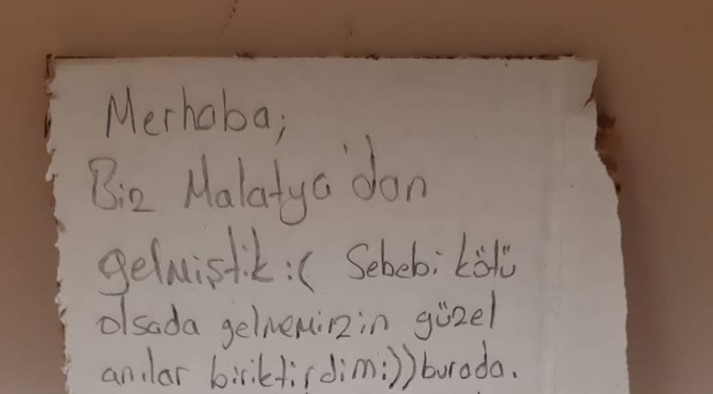 Merhaba;
Biz Malatya'dan
gelmiştik :( Sebebi kötü
olsada gelmemizin güzel
anılar biriktirdim :)) burada.